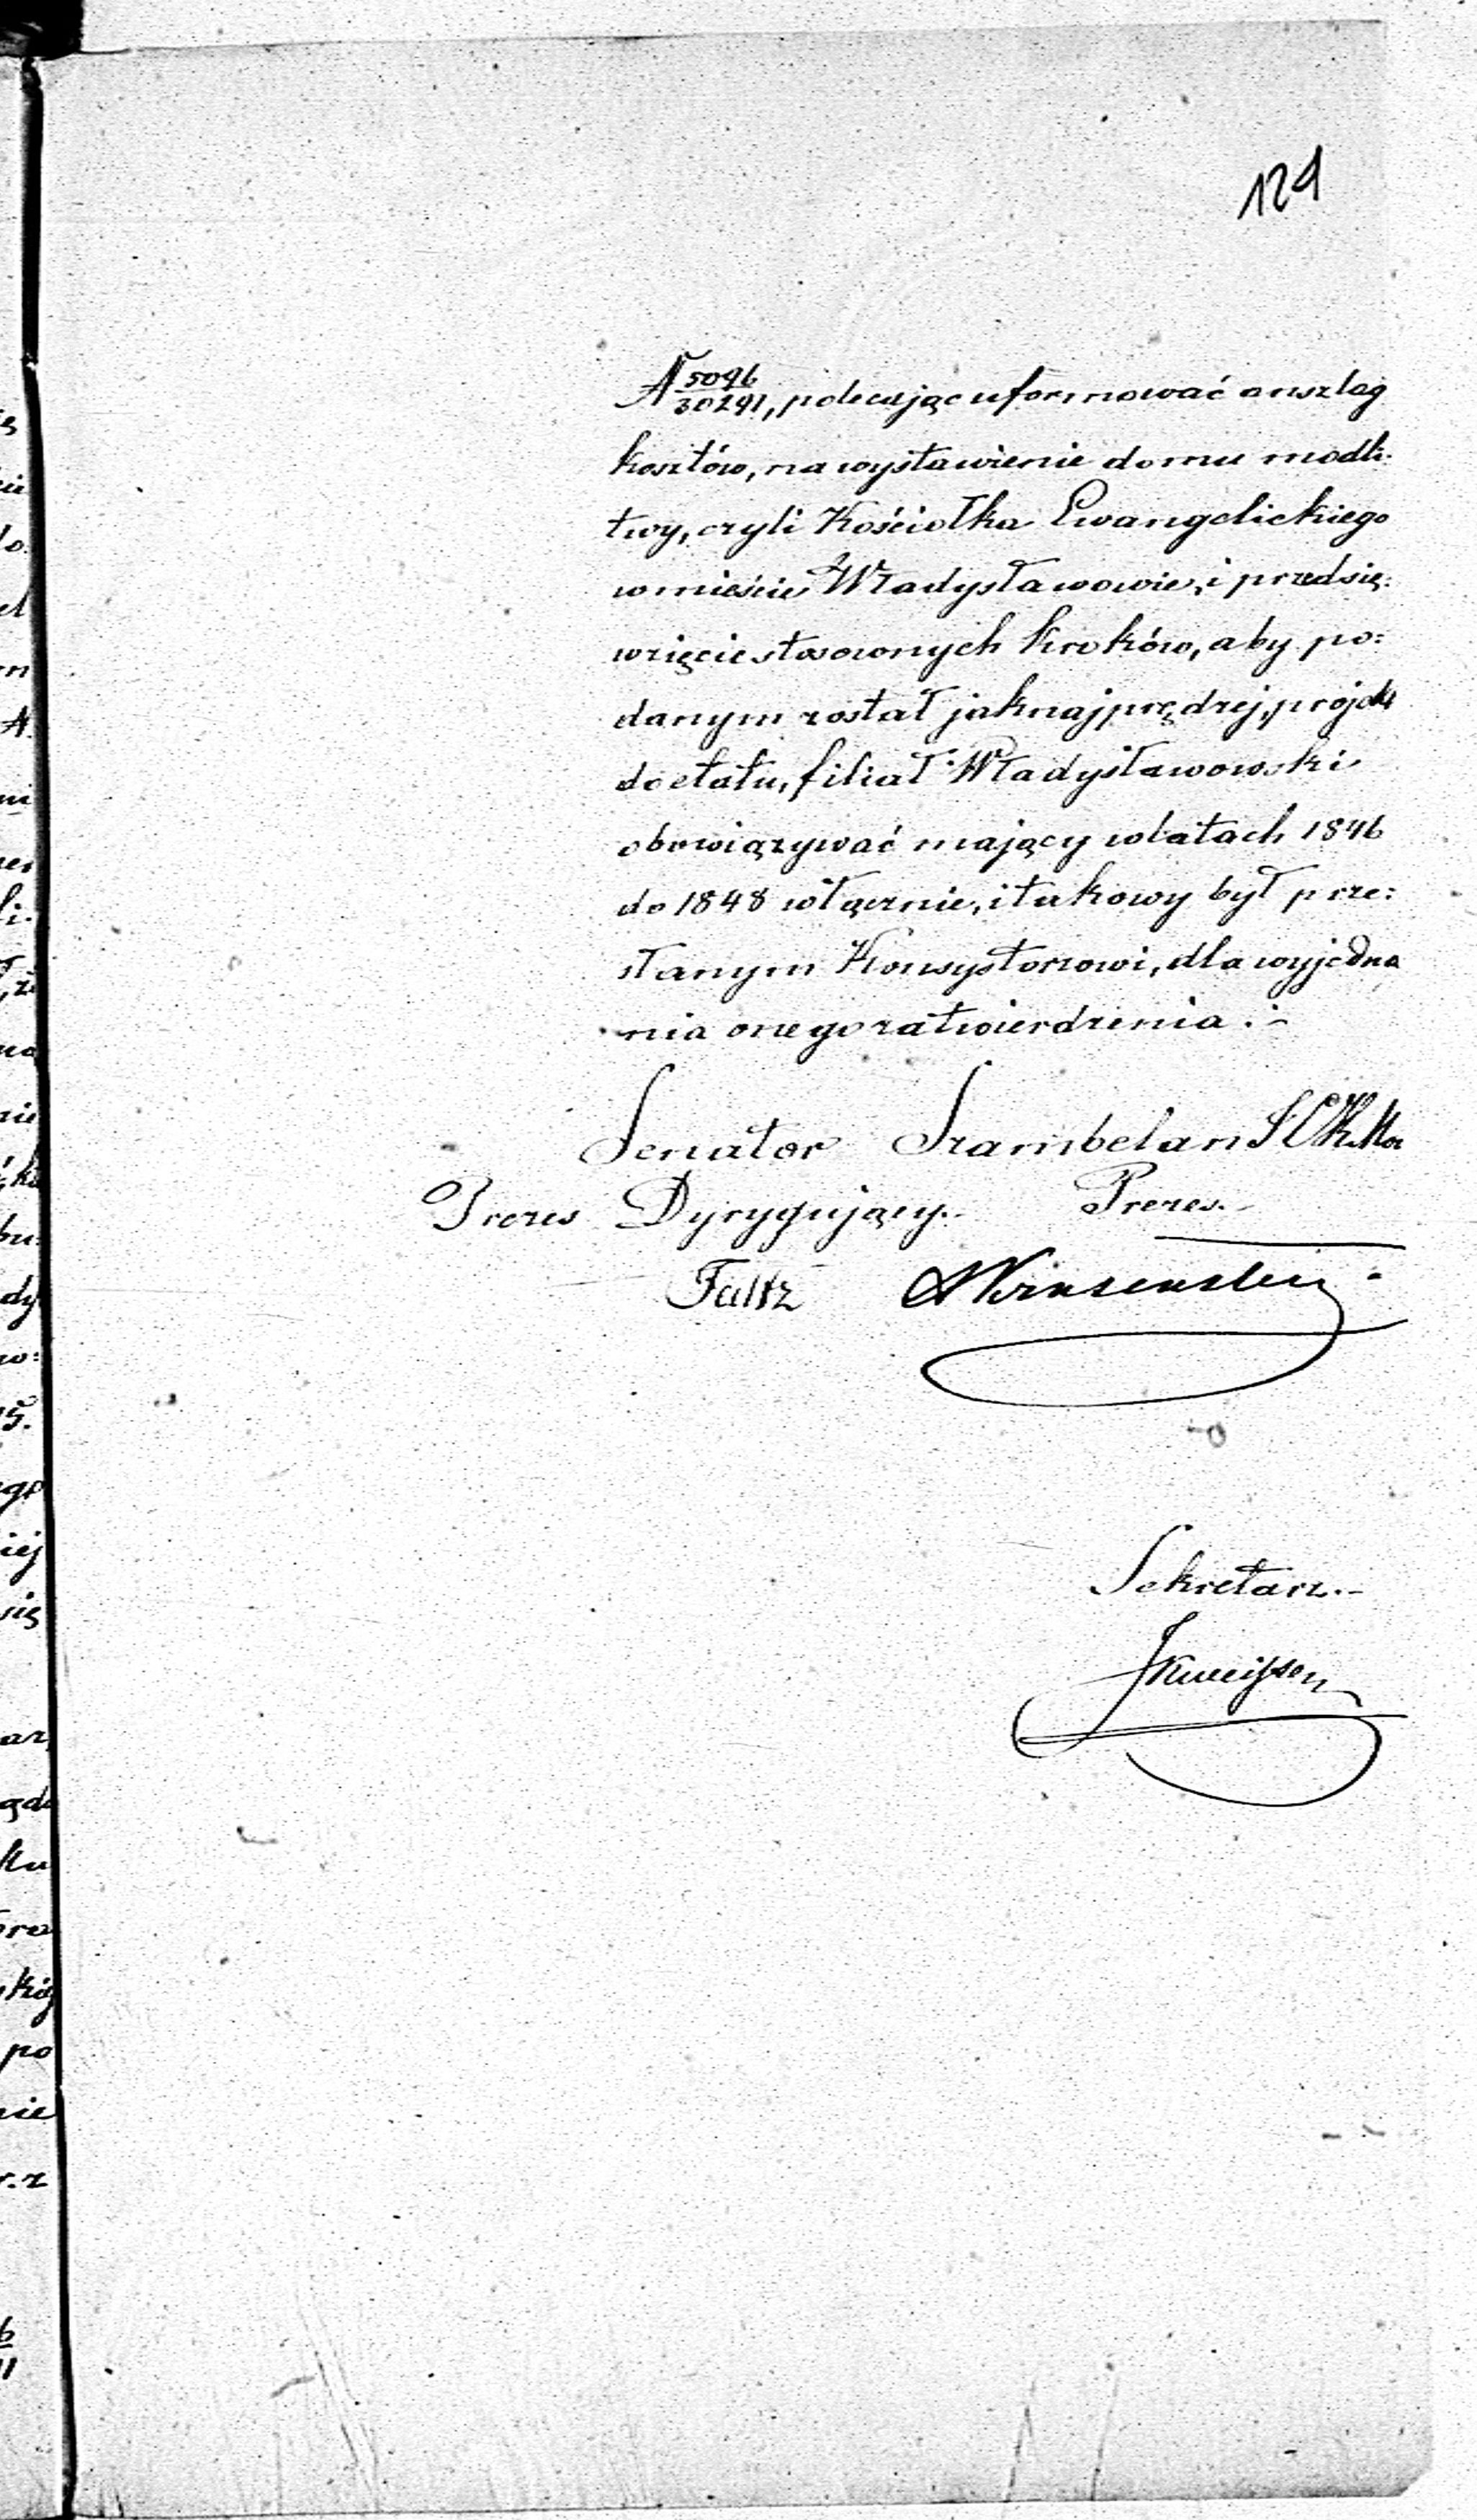 129
N 5096/30291, polecając uformować anszlag
kosztów, na wystawienie domu modli-
twy, czyli Kościołka Ewangelickiego
w mieście Władysławowie, i przedsię:
wzięcie stosownych kroków, aby po:
danym został jaknajprędzej, projekt
do etatu, filiał Władysławowski
obowiązywać mający w latach 1846
do 1848 włącznie, i takowy był prze:
słanym Konsystorzowi, dla wyjedna
nia onego zatwierdzenia.-
Senator Szambelan
Prezes Dyrygujący.- Prezes.-
Faltz
Sekretarz.-